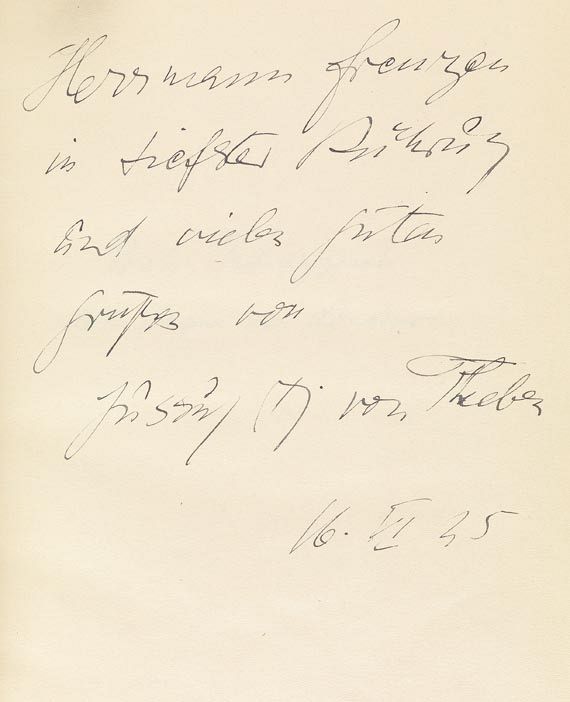 Herrmann Frenzen
in tiefster Rührung
und vielen guten
Grüßen von
Jusuf (†) von Theben
16. VII 25